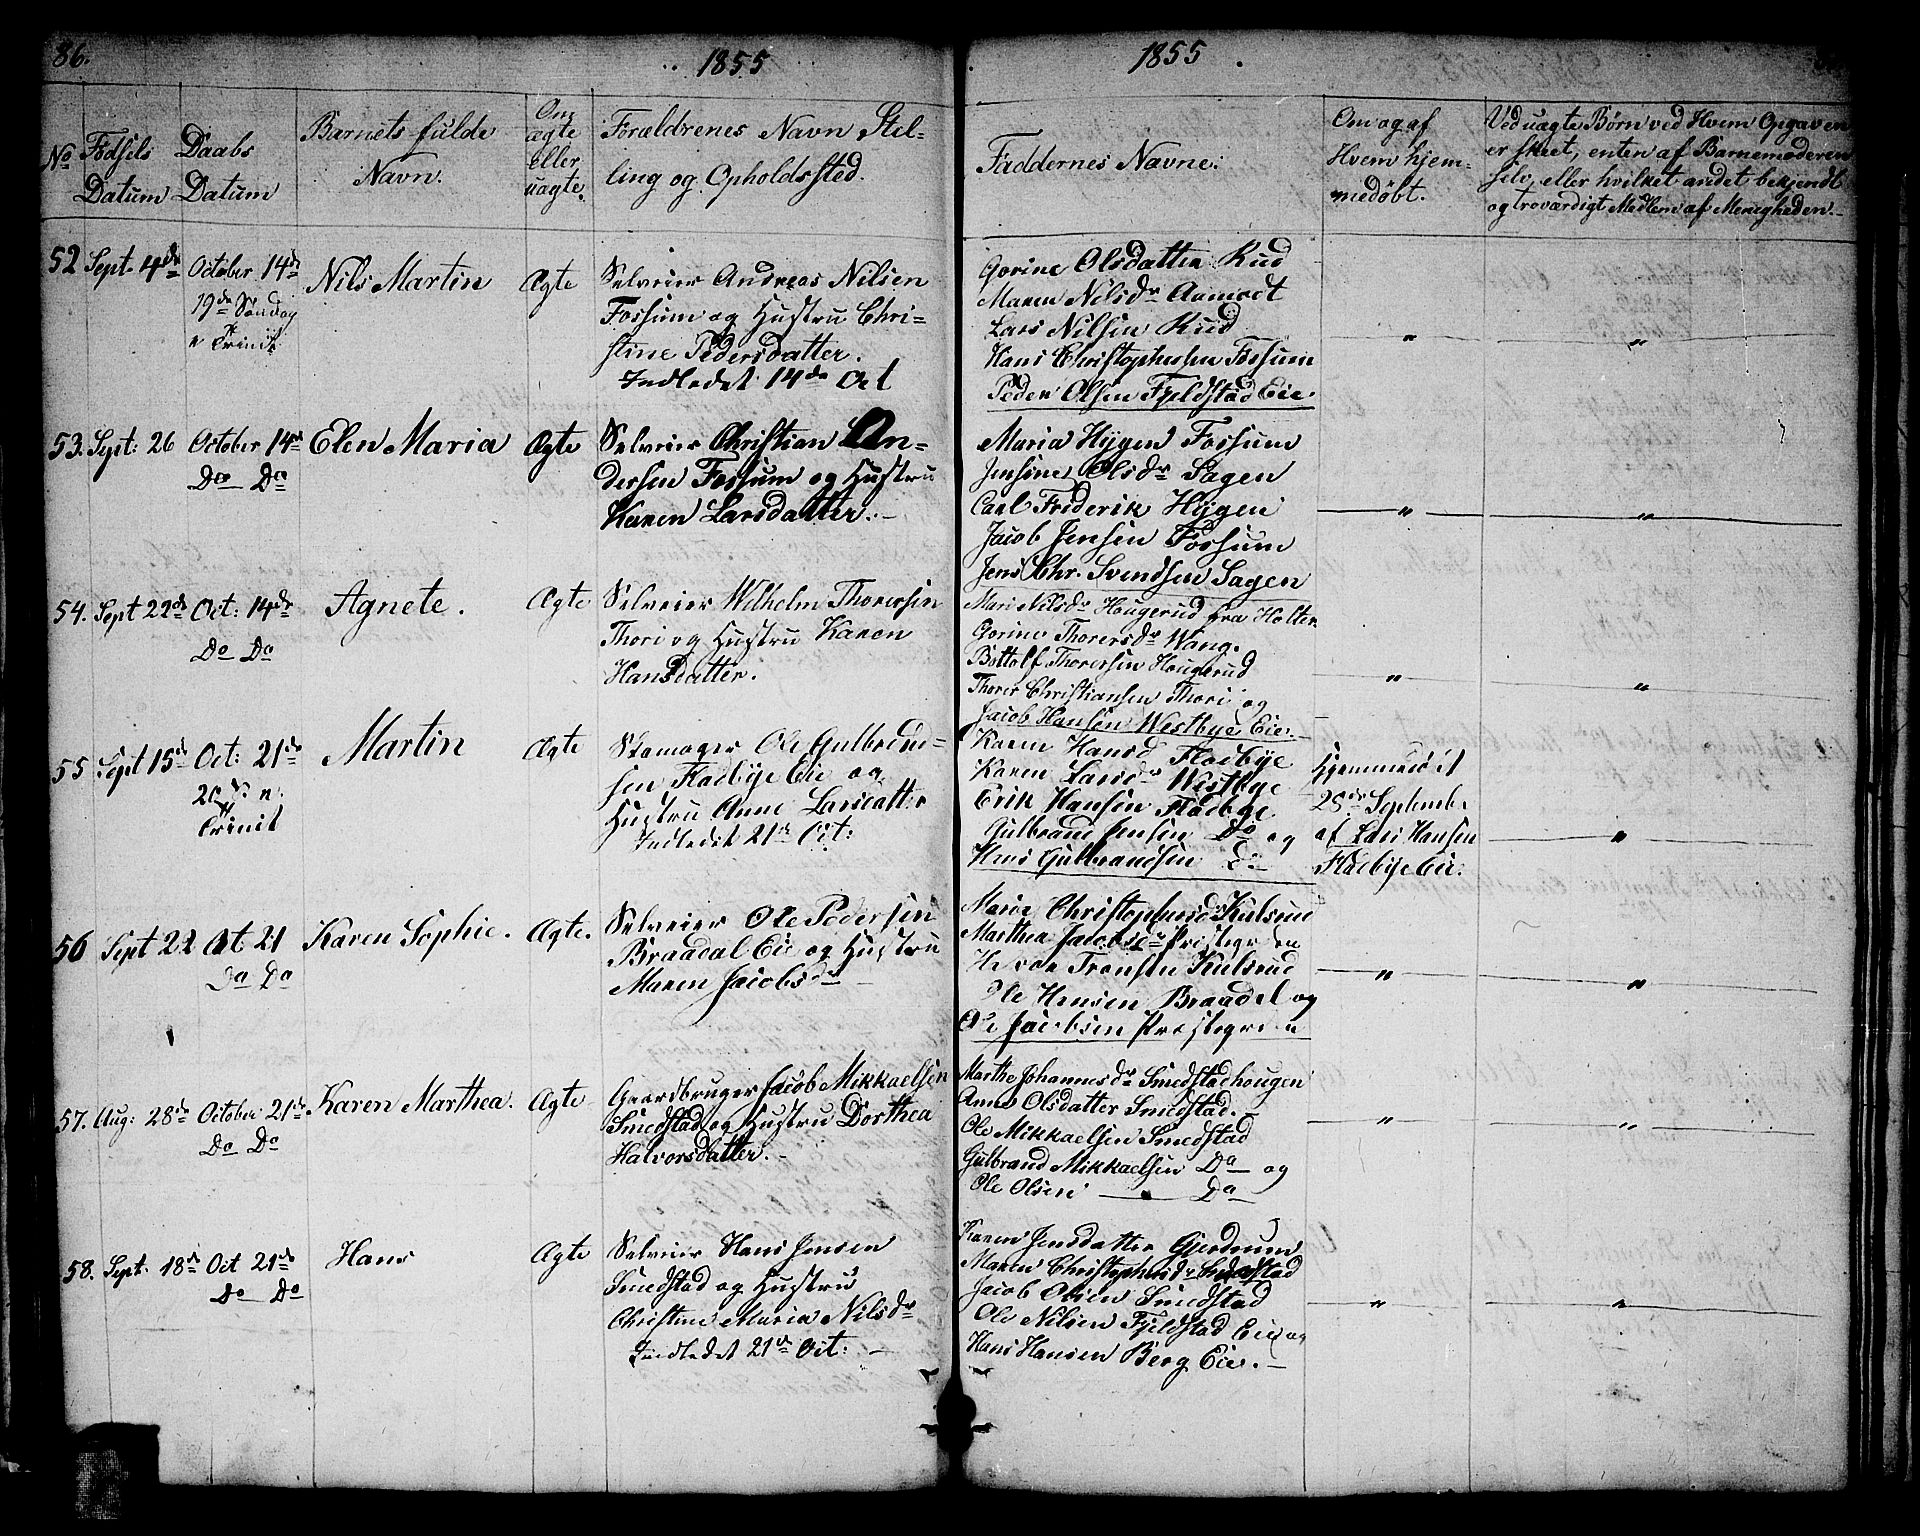 86.
1855
No
Fødsels
Datum
Daabs
Datum
Barnets fulde
Navn.
Om
ægte
eller
uægte.
Forældrenes Navn Stil-
ling og Opholdssted.
52
Sept. 4de
October 14de
19de Søndag
e Trinit.
Nils Martin
Ægte
Selveier Andreas Nilsen
Fossum og Hustru Chri-
stine Pedersdatter.
Indledet 14de Oct
53.
Sept: 26
October 14de
Do Do
Elen Maria
Ægte
Selveier Christian An-
dersen Fossum og Hustru
Karen Larsdatter.
54.
Sept 22de
Oct: 14de
Do Do
Agnete.
Ægte
Selveier Wilhelm Thorersen
Thori og Hustru Karen
Hansdatter.
55
Sept 15de
Oct: 21de
20 S. e.
Trinit
Martin
Ægte
Skomager Ole Gulbrand-
sen Fladbye Eie og
Hustru Anne Larsdatter
Indledet 21de Oct:
56
Sept 22
Oct 21
Do Do
Karen Sophie.
Ægte.
Selveier Ole Pedersen
Braadal Eie og Hustru
Maren Jacobsdr
57.
Aug: 28de
October 21de
Do Do
Karen Marthea.
Ægte
Gaardbruger Jacob Mikkaelsen
Smedstad og Hustru Dorthea
Halvorsdatter.
58.
Sept. 18de
Oct 21de
Do Do
Hans
Ægte
Selveier Hans Jensen
Smedstad og Hustru
Christine Maria Nilsdr
Indledet 21de Oct:
1855
Faddernes Navne.
Om og af
Hvem hjem-
medøbt.
Ved uægte Børn ved Hvem Opgaven
er skeet, enten af Barnemoderen
selv, eller hvilket andet bekjendt
og troværdigt Medlem af Menigheden.
Gorine Olsdatter Rud
Maren Nilsdr Aamodt
Lars Nilsen Rud
Hans Christophersen Fossum
Peder Olsen Fjeldstad Eie.
" "
Maria Hygen Fossum
Jensine Olsdr Sagen
Carl Friderik Hygen
Jacob Jensen Fossum
Jens Chr. Svendsen Sagen
" "
Mari Nilsdr Hougerud fra Holter
Gorine Thorersdr Wang.
Bottolf Thorersen Hougerud
Thorer Christiansen Thori og
Jacob Hansen Westbye Eie.
" "
Karen Hansd Fladbye
Karen Larsdr Westbye
Erik Hansen Fladbye
Gulbrand Jensen Do og
Hans Gulbrandsen Do
Hjemmedøbt
23de September
af Lars Hansen
Fladbye Eie.
"
Maria Christophersd Kulsrud
Marthea Jacobsdr Præstegrden
Halvor Tronsen Kulsrud
Ole Hansen Braadal og
Ole Jacobsen Præstegrden
" "
Marthe Johannesdr Smedstadhougen
Anne Olsdatter Smedstad.
Ole Mikkaelsen Smedstad
Gulbrand Mikkaelsen Do og
Ole Olsen Do
" "
Karen Jensdatter Gjerdrum
Maren Christophersdr Smedstad
Jacob Olsen Smedstad
Ole Nilsen Fjeldstad Eie og
Hans Hansen Berg Eie.
" "